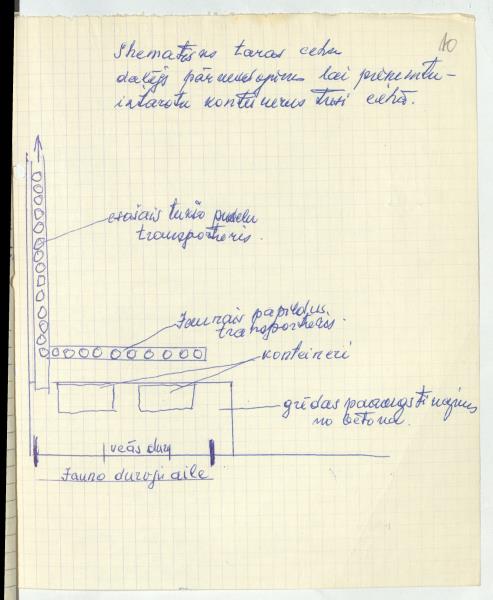 10
Shematisks taras ceha
daļējs pārveidojums lai pieņemtu
intarotu konteinerus tieši cehā.
esošais tukšo pudeļu
transportieris.
Jaunais papildus
transportieris.
konteineri
grīdas paaugstinājums
no betona.
vecās durv
Jauno durvju aile